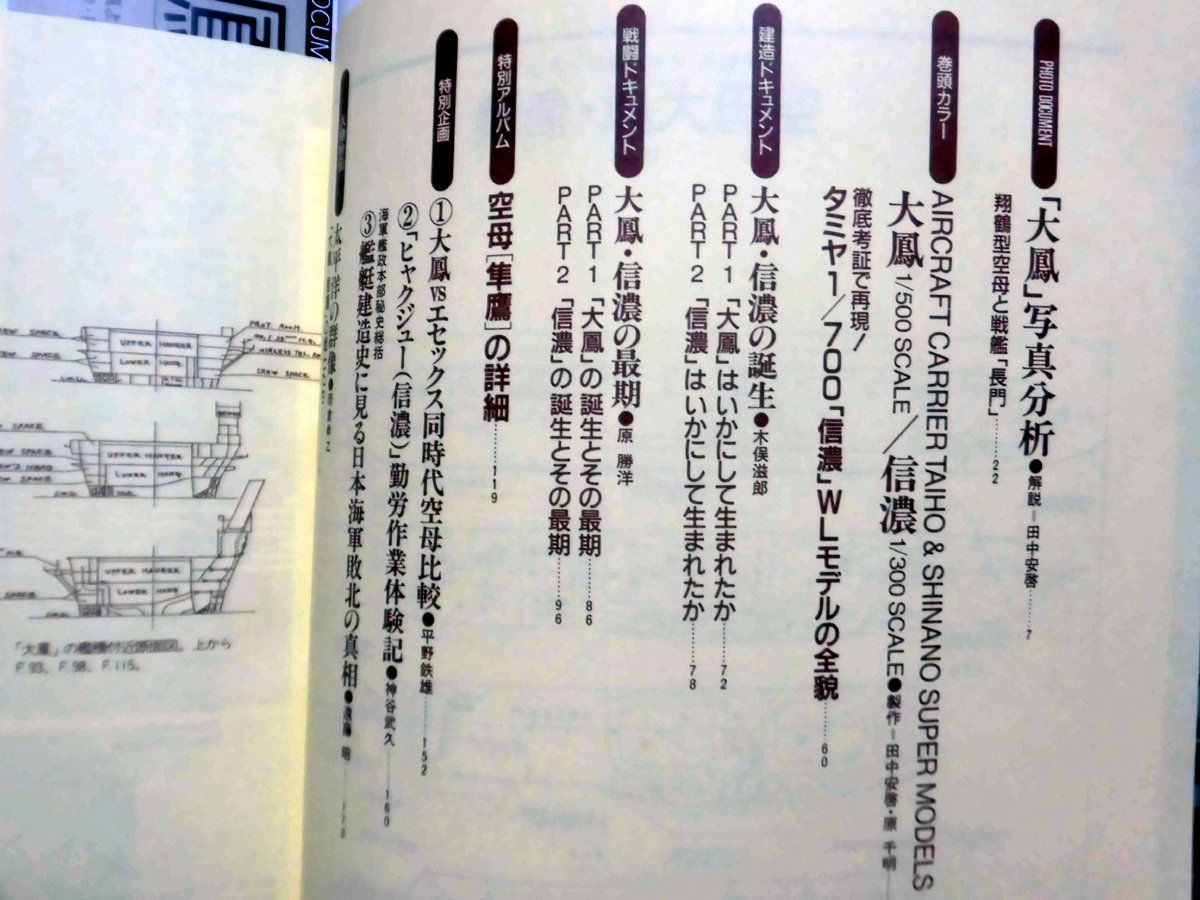 DOCUM
PHOTO DOCUMENT
「大鳳」写真分析●解説=田中安啓……7
翔鶴型空母と戦艦「長門」……22
巻頭カラー
AIRCRAFT CARRIER TAIHO & SHINANO SUPER MODELS
大鳳 1/500 SCALE/信濃 1/300 SCALE●製作=田中安啓・原 千明
徹底考証で再現!
タミヤ1/700「信濃」WLモデルの全貌……60
建造ドキュメント
大鳳・信濃の誕生●木俣滋郎
PART1「大鳳」はいかにして生まれたか……72
PART2「信濃」はいかにして生まれたか……78
戦闘ドキュメント
大鳳・信濃の最期●原 勝洋
PART1「大鳳」の誕生とその最期……86
PART2「信濃」の誕生とその最期……96
特別アルバム
空母[隼鷹]の詳細……119
特別企画
①大鳳vsエセックス同時代空母比較●平野鉄雄……152
②「ヒャクジュー(信濃)」勤労作業体験記●神谷武久……160
海軍艦政本部秘史総括
③艦艇建造史に見る日本海軍敗北の真相●遠藤 昭……170
太平洋の群像
UPPER HANGER
CREW SPACE
UPPER HANGER
LOWER HANG
UPPER HANGER
LOWER HANG
「大鳳」の艦橋付近断面図。上から
F.93、F.98、F.115。